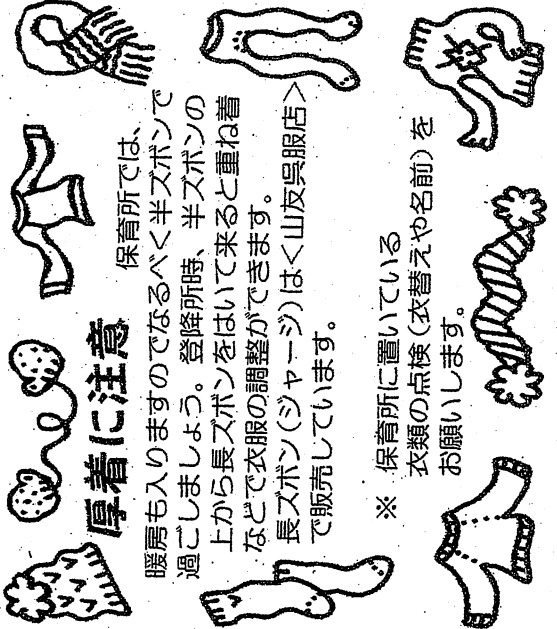 厚着に注意
保育所では、
暖房も入りますのでなるべく半ズボンで
過ごしましょう。登降所時、半ズボンの
上から長ズボンをはいて来ると重ね着
などで衣服の調整ができます。
長ズボン(ジャージ)は<山友呉服店>
で販売しています。
※ 保育所に置いている
衣類の点検(衣替えや名前)を
お願いします。